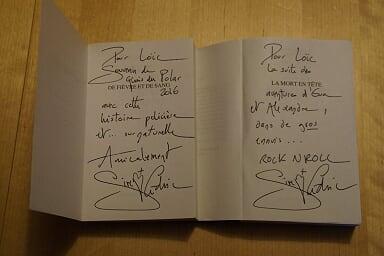 Pour Loïc
Souvenir de
Quais du Polar
2016
DE FIÈVRE ET DE SANG
avec cette
histoire policière
et... surnaturelle
Amicalement
Sire Cédric
Pour Loïc
la suite des
LA MORT EN TÊTE
aventures d'Eva
et Alexandre,
dans de gros
ennuis...
ROCK N ROLL
Sire Cédric